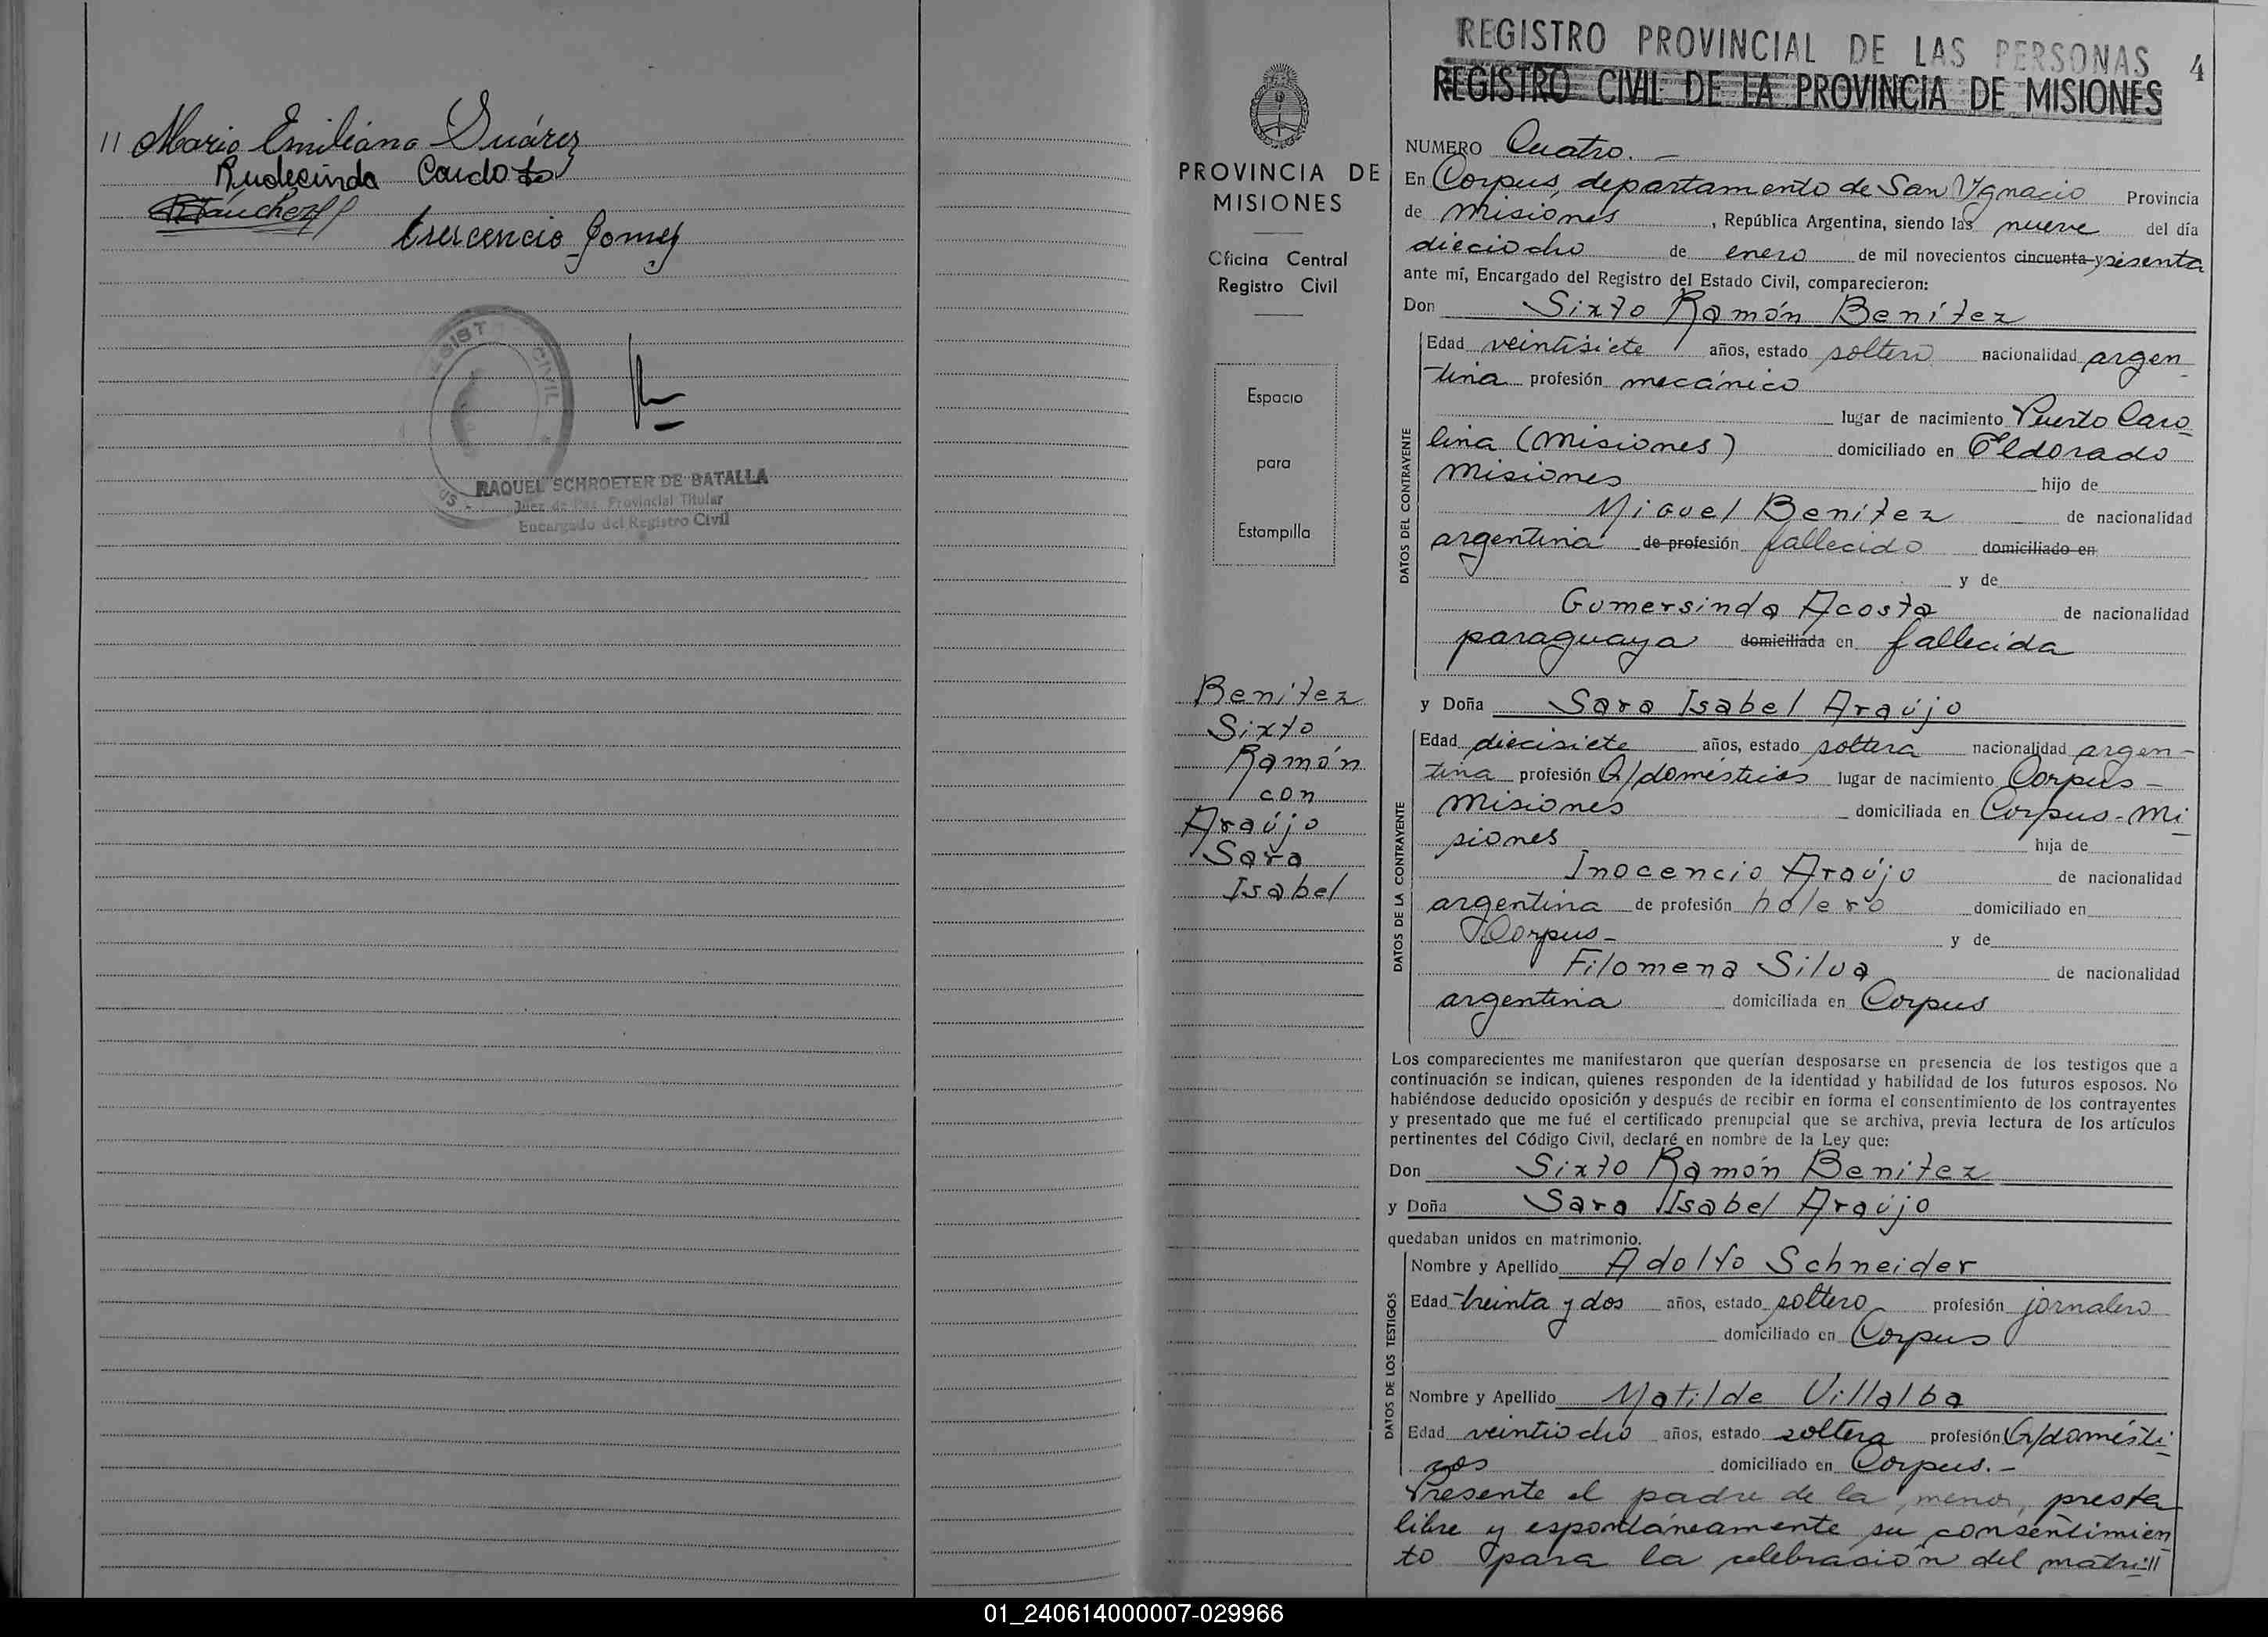 11 Mario Emiliano Suárez
Rudecinda Cardozo
Crescencio Gomez
REGISTRO CIVIL
RAQUEL SCHROETER DE BATALLA
Juez de Paz Provincial Titular
Encargado del Registro Civil
PROVINCIA DE
MISIONES
Oficina Central
Registro Civil
Espacio
para
Estampilla
Benítez
Sixto
Ramón
con
Araújo
Sara
Isabel
REGISTRO PROVINCIAL DE LAS PERSONAS
4
REGISTRO CIVIL DE LA PROVINCIA DE MISIONES
NUMERO Cuatro.-
En Corpus, departamento de San Ygnacio Provincia
de Misiones, República Argentina, siendo las nueve del día
dieciocho de enero de mil novecientos cincuenta y sesenta
ante mí, Encargado del Registro del Estado Civil, comparecieron:
Don Sixto Ramón Benítez
DATOS DEL CONTRAYENTE
Edad veintisiete años, estado soltero nacionalidad argen-
tina profesión mecánico
lugar de nacimiento Puerto Caro-
lina (Misiones) domiciliado en Eldorado
Misiones hijo de
Miguel Benítez de nacionalidad
argentina de profesión fallecido domiciliado en
y de
Gumersinda Acosta de nacionalidad
paraguaya domiciliada en fallecida
y Doña Sara Isabel Araújo
DATOS DE LA CONTRAYENTE
Edad diecisiete años, estado soltera nacionalidad argen-
tina profesión Q/domésticos lugar de nacimiento Corpus-
Misiones domiciliada en Corpus-Mi-
siones hija de
Inocencio Araújo de nacionalidad
argentina de profesión holero domiciliado en
Corpus- y de
Filomena Silva de nacionalidad
argentina domiciliada en Corpus
Los comparecientes me manifestaron que querían desposarse en presencia de los testigos que a
continuación se indican, quienes responden de la identidad y habilidad de los futuros esposos. No
habiéndose deducido oposición y después de recibir en forma el consentimiento de los contrayentes
y presentado que me fué el certificado prenupcial que se archiva, previa lectura de los artículos
pertinentes del Código Civil, declaré en nombre de la Ley que:
Don Sixto Ramón Benítez
y Doña Sara Isabel Araújo
quedaban unidos en matrimonio.
DATOS DE LOS TESTIGOS
Nombre y Apellido Adolfo Schneider
Edad treinta y dos años, estado soltero profesión jornalero
domiciliado en Corpus
Nombre y Apellido Matilde Villalba
Edad veintiocho años, estado soltera profesión Q/domésti-
cos domiciliado en Corpus.-
Presente el padre de la menor, presta
libre y espontáneamente su consentimien
to para la celebrasión del matri-11
01_240614000007-029966